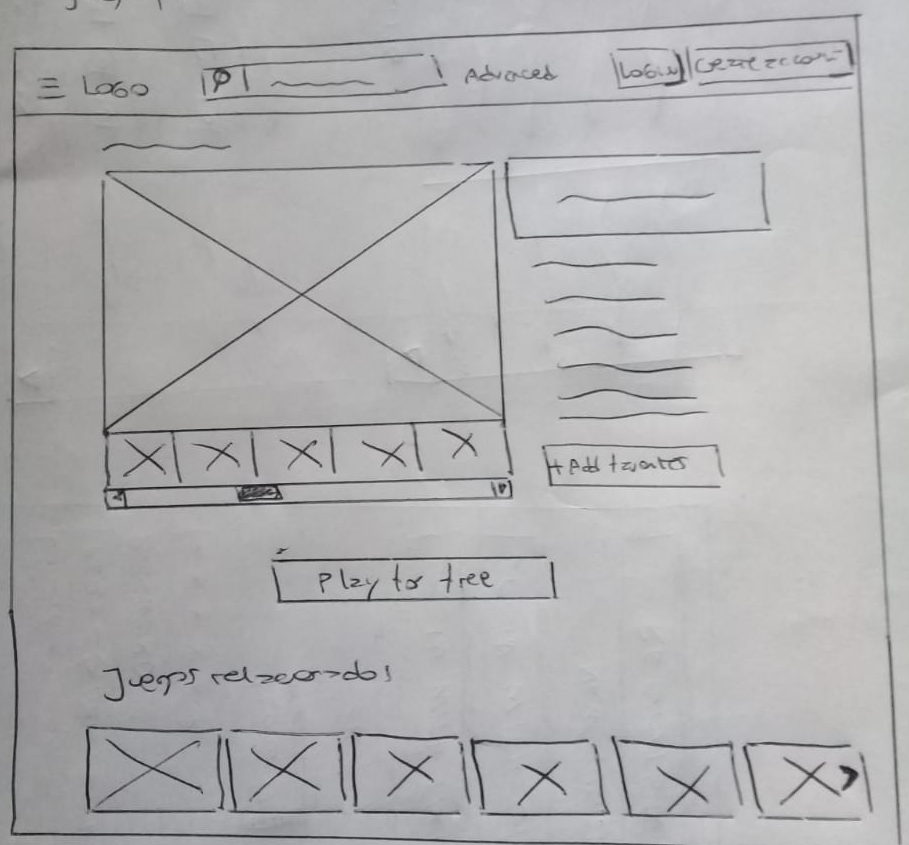 Logo
Advanced
Login
Create account
+ Add favorites
Play for free
Juegos relacionados